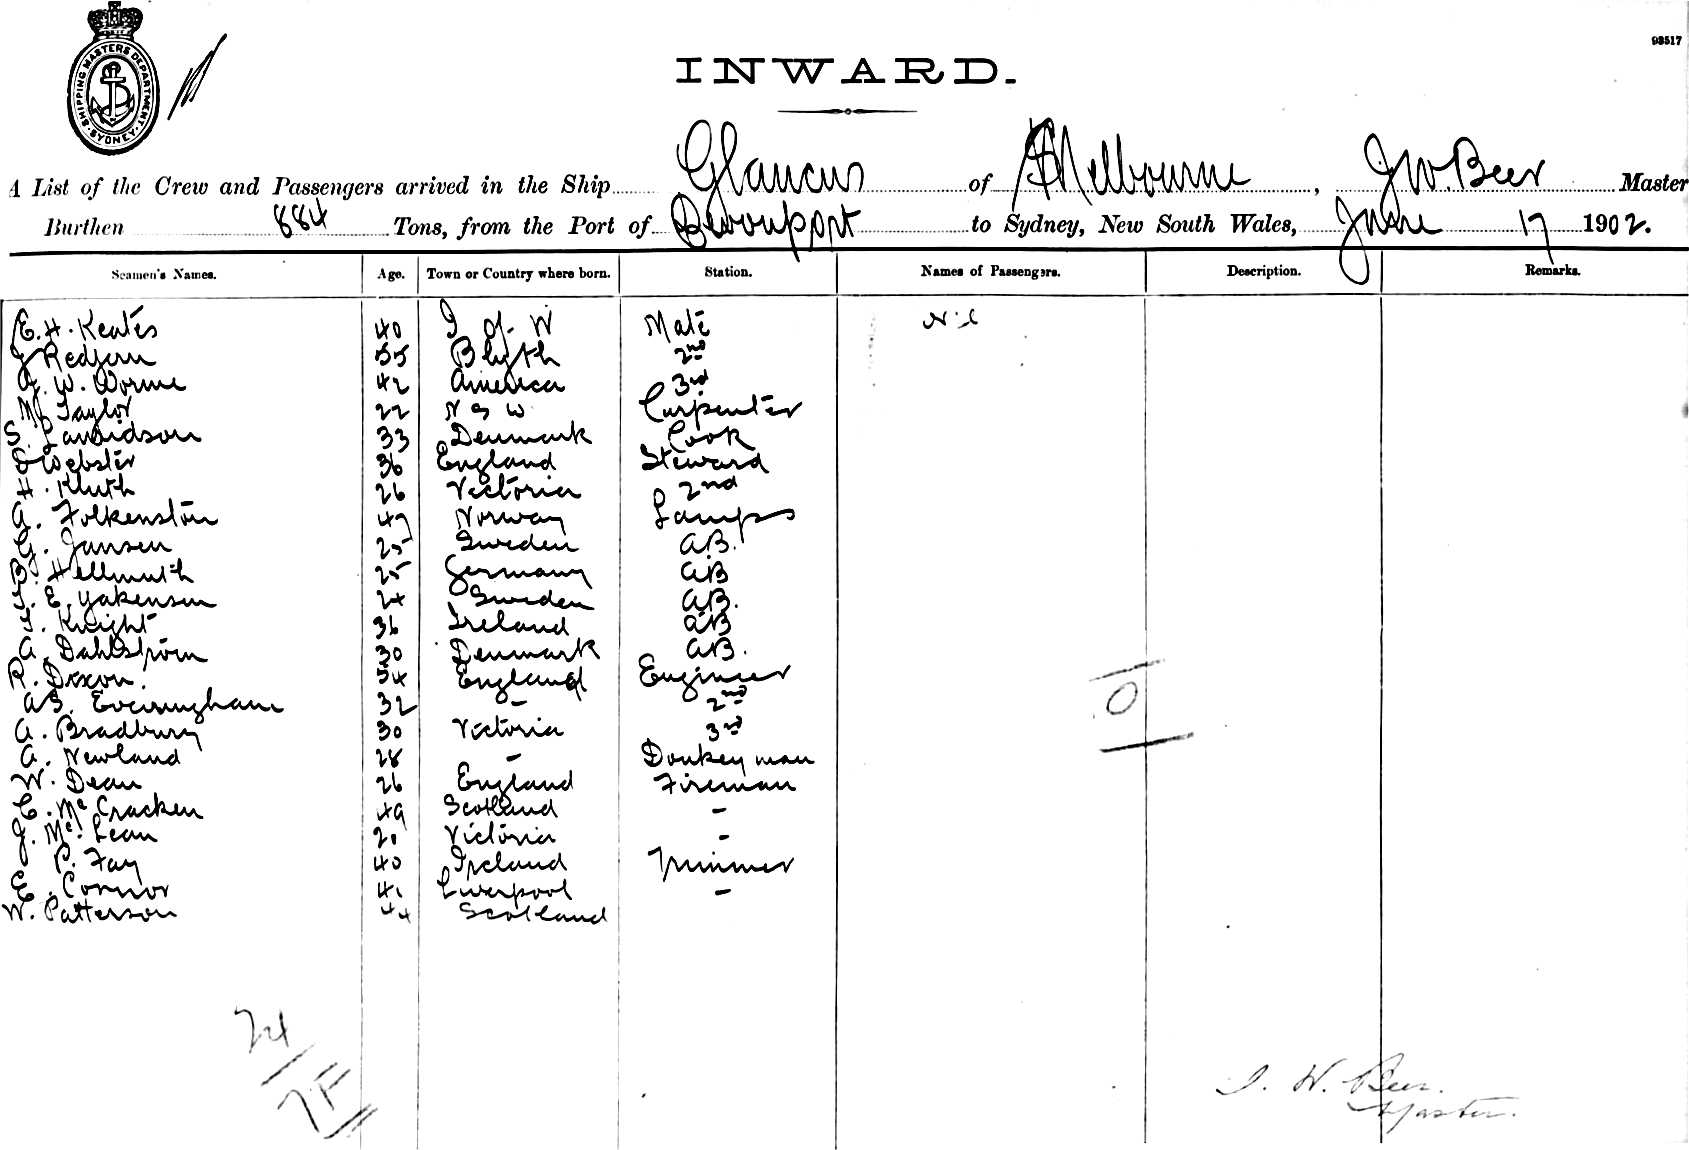 93517
SHIPPING MASTERS DEPARTMENT SYDNEY
INWARD.
A List of the Crew and Passengers arrived in the Ship Glaucus of Melbourne, J W. Beer Master
Burthen 884 Tons, from the Port of Devonport to Sydney, New South Wales, June 17 1902.
Seamen's Names. Age. Town or Country where born. Station. Names of Passengers. Description. Remarks.
E. H. Keates 40 I of W Mate Nil
J Redfern 55 Blyth 2nd
W. Worme 42 America 3rd
M Taylor 22 N S W. Carpenter
S. Davidson 33 Denmark Cook
Webster 36 England Steward
H. Kluth 26 Victoria 2nd
A. Folkenston 49 Norway Lamps
G. Jansen 25 Sweden AB.
B. Hellmuth 25 Germany AB
E. Yakenson 24 Sweden AB.
T. Knight 36 Ireland AB
A. Dahlstrom 30 Denmark AB.
R. Dixon. 54 England Engineer
AS. Everingham 32 - 2nd
A. Bradbury 30 Victoria 3rd
A. Newland 28 - Donkeyman
W. Dean 26 England Fireman
C. McCracken 49 Scotland -
J. McLean 20 Victoria -
P. Fay 40 Ireland Trimmer
E. Connor 41 Liverpool -
W. Patterson 44 Scotland
0
24
J. W. Beer.
Master.